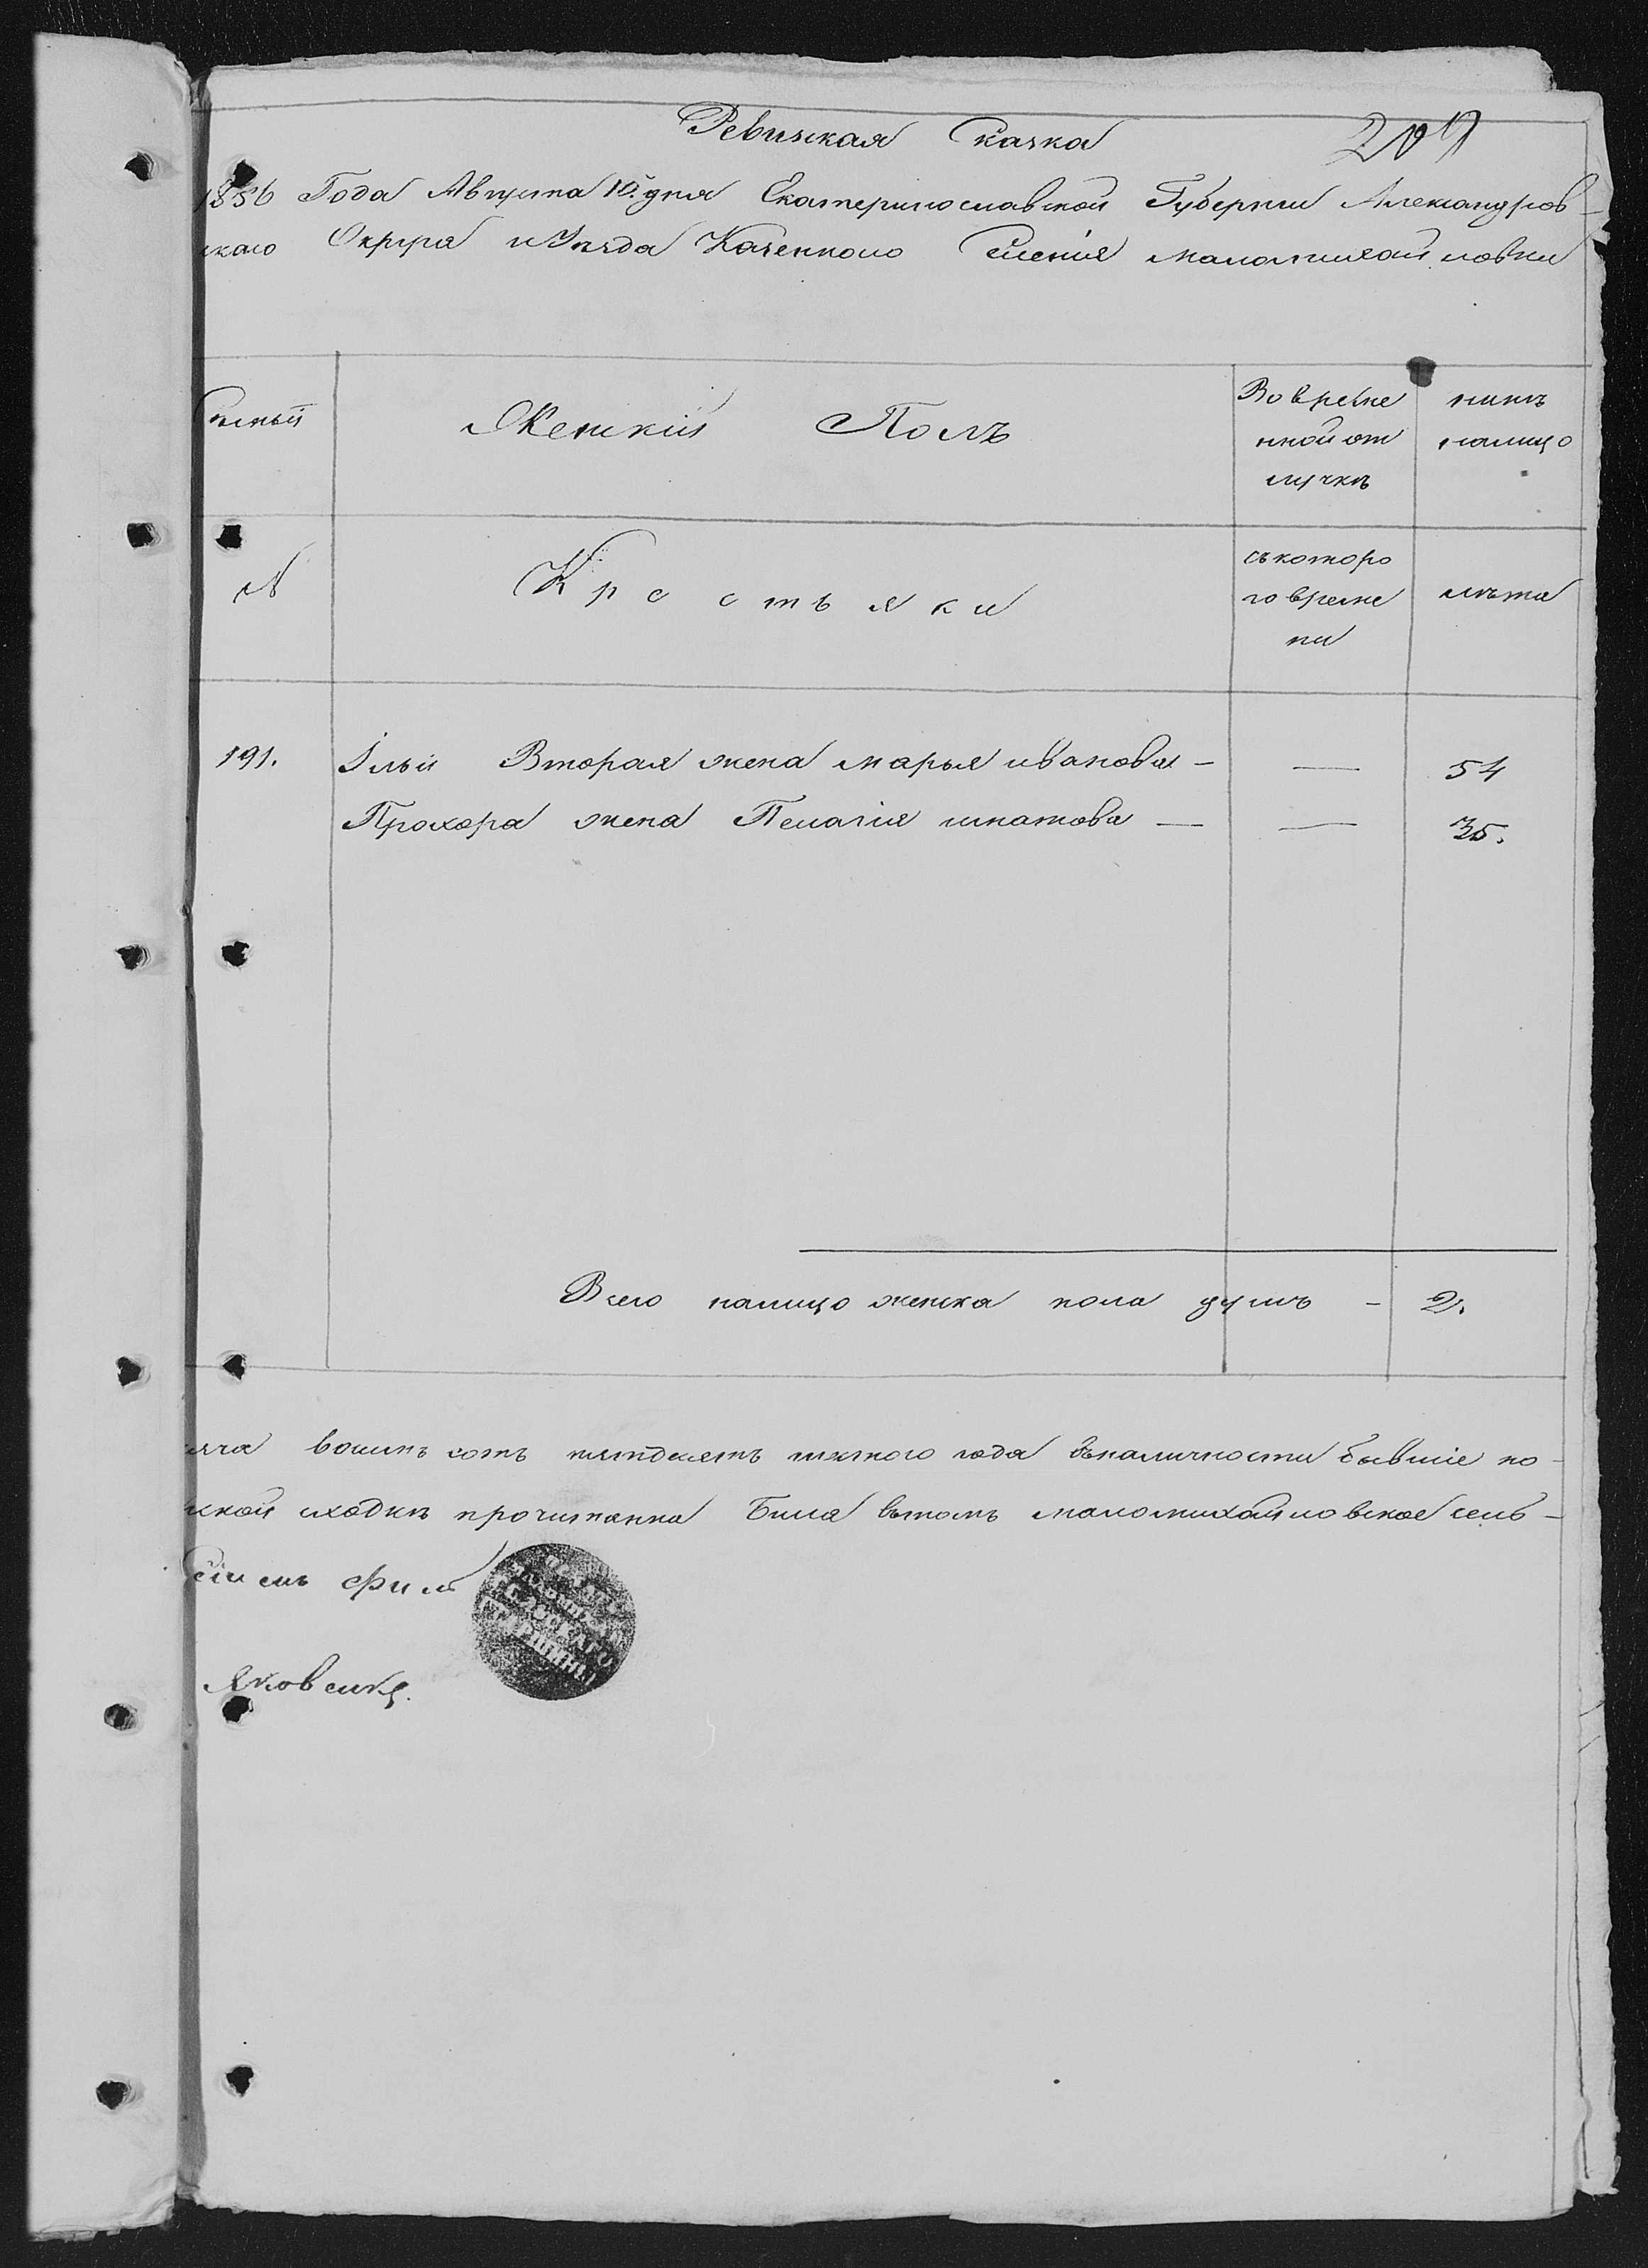 Ревизкая Сказка
1856 Года Августа 10. дня Екатеринославской Губернии Александров-
скаго Округа и Уезда Казенного Сления маломихайловки
Семьи
Женский Полъ
Во време
нной от
лучкѣ
нинѣ
налицо
№
Крестьяки
съ которо
го време
ни
лѣта
191. Ільи Вторая жена марья иванова — — 54
Прохора жена Пелагія игнатова — — 35.
Всего налицо женска пола душъ - 2.
восимъ сотъ пятдесятъ шестого года въналичности бывшіе по-
ской сходкѣ прочитанна Била вътомъ маломихайловское сель-
Яковенк